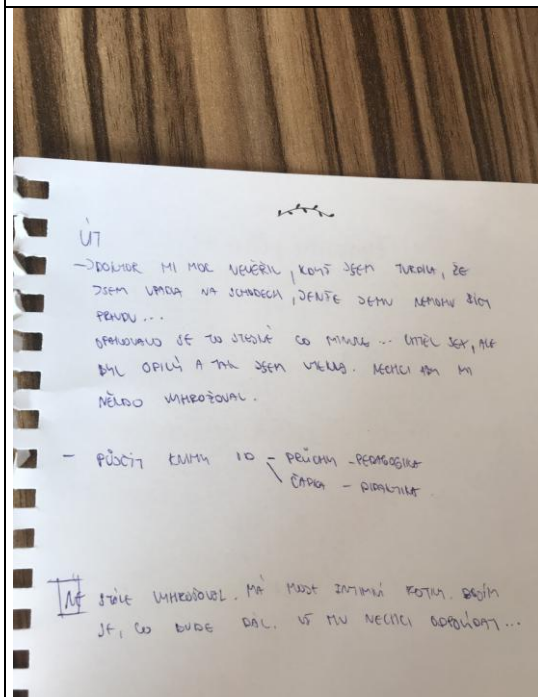 ÚT
→ DOKTOR MI MOC NEVĚŘIL, KDYŽ JSEM TVRDILA, ŽE
JSEM UPADLA NA SCHODECH, JENŽE JEMU NEMOHU ŘÍCT
PRAVDU...
OPAKOVALO SE TO STEJNÉ CO MINULE... CHTĚL SEX, ALE
BYL OPILÝ A TAK JSEM UTEKLA. NECHCI ABY MI
NĚKDO VYHROŽOVAL.
- PŮJČIT KNIHY - PRŮCHA - PEDAGOGIKA
ČAPKA - DIDAKTIKA
NE STÁLE VYHROŽOVAL. MÁ MOJE INTIMNÍ FOTKY. BOJÍM
SE, CO BUDE DÁL. UŽ MU NECHCI ODPOVÍDAT...